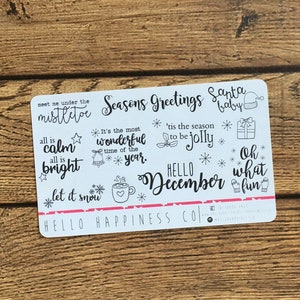 meet me under the
mistletoe
Seasons Greetings
Santa
baby
all is
calm
all is
bright
it's the most
wonderful
time of the
year
'tis the season
to be jolly
Oh
what
fun
HELLO
December
let it snow
HELLO HAPPINESS CO